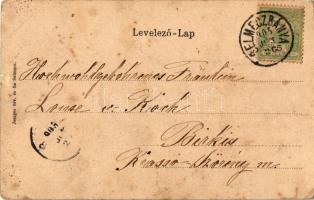 Levelező-Lap
SELMECZBÁNYA
905
Hochwohlgeborenes Fräulein
Louse v. Koch
Birkis
Krasso-Szörény m.
905